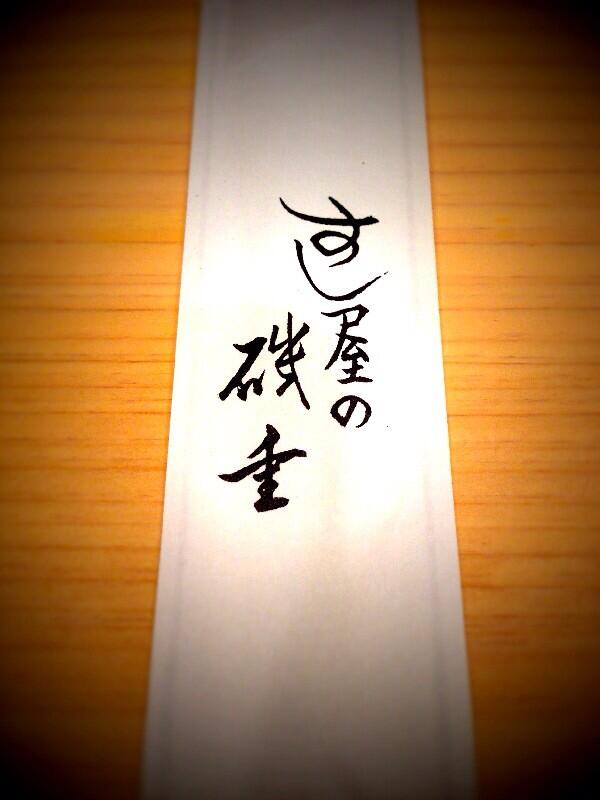 すし屋の
磯重